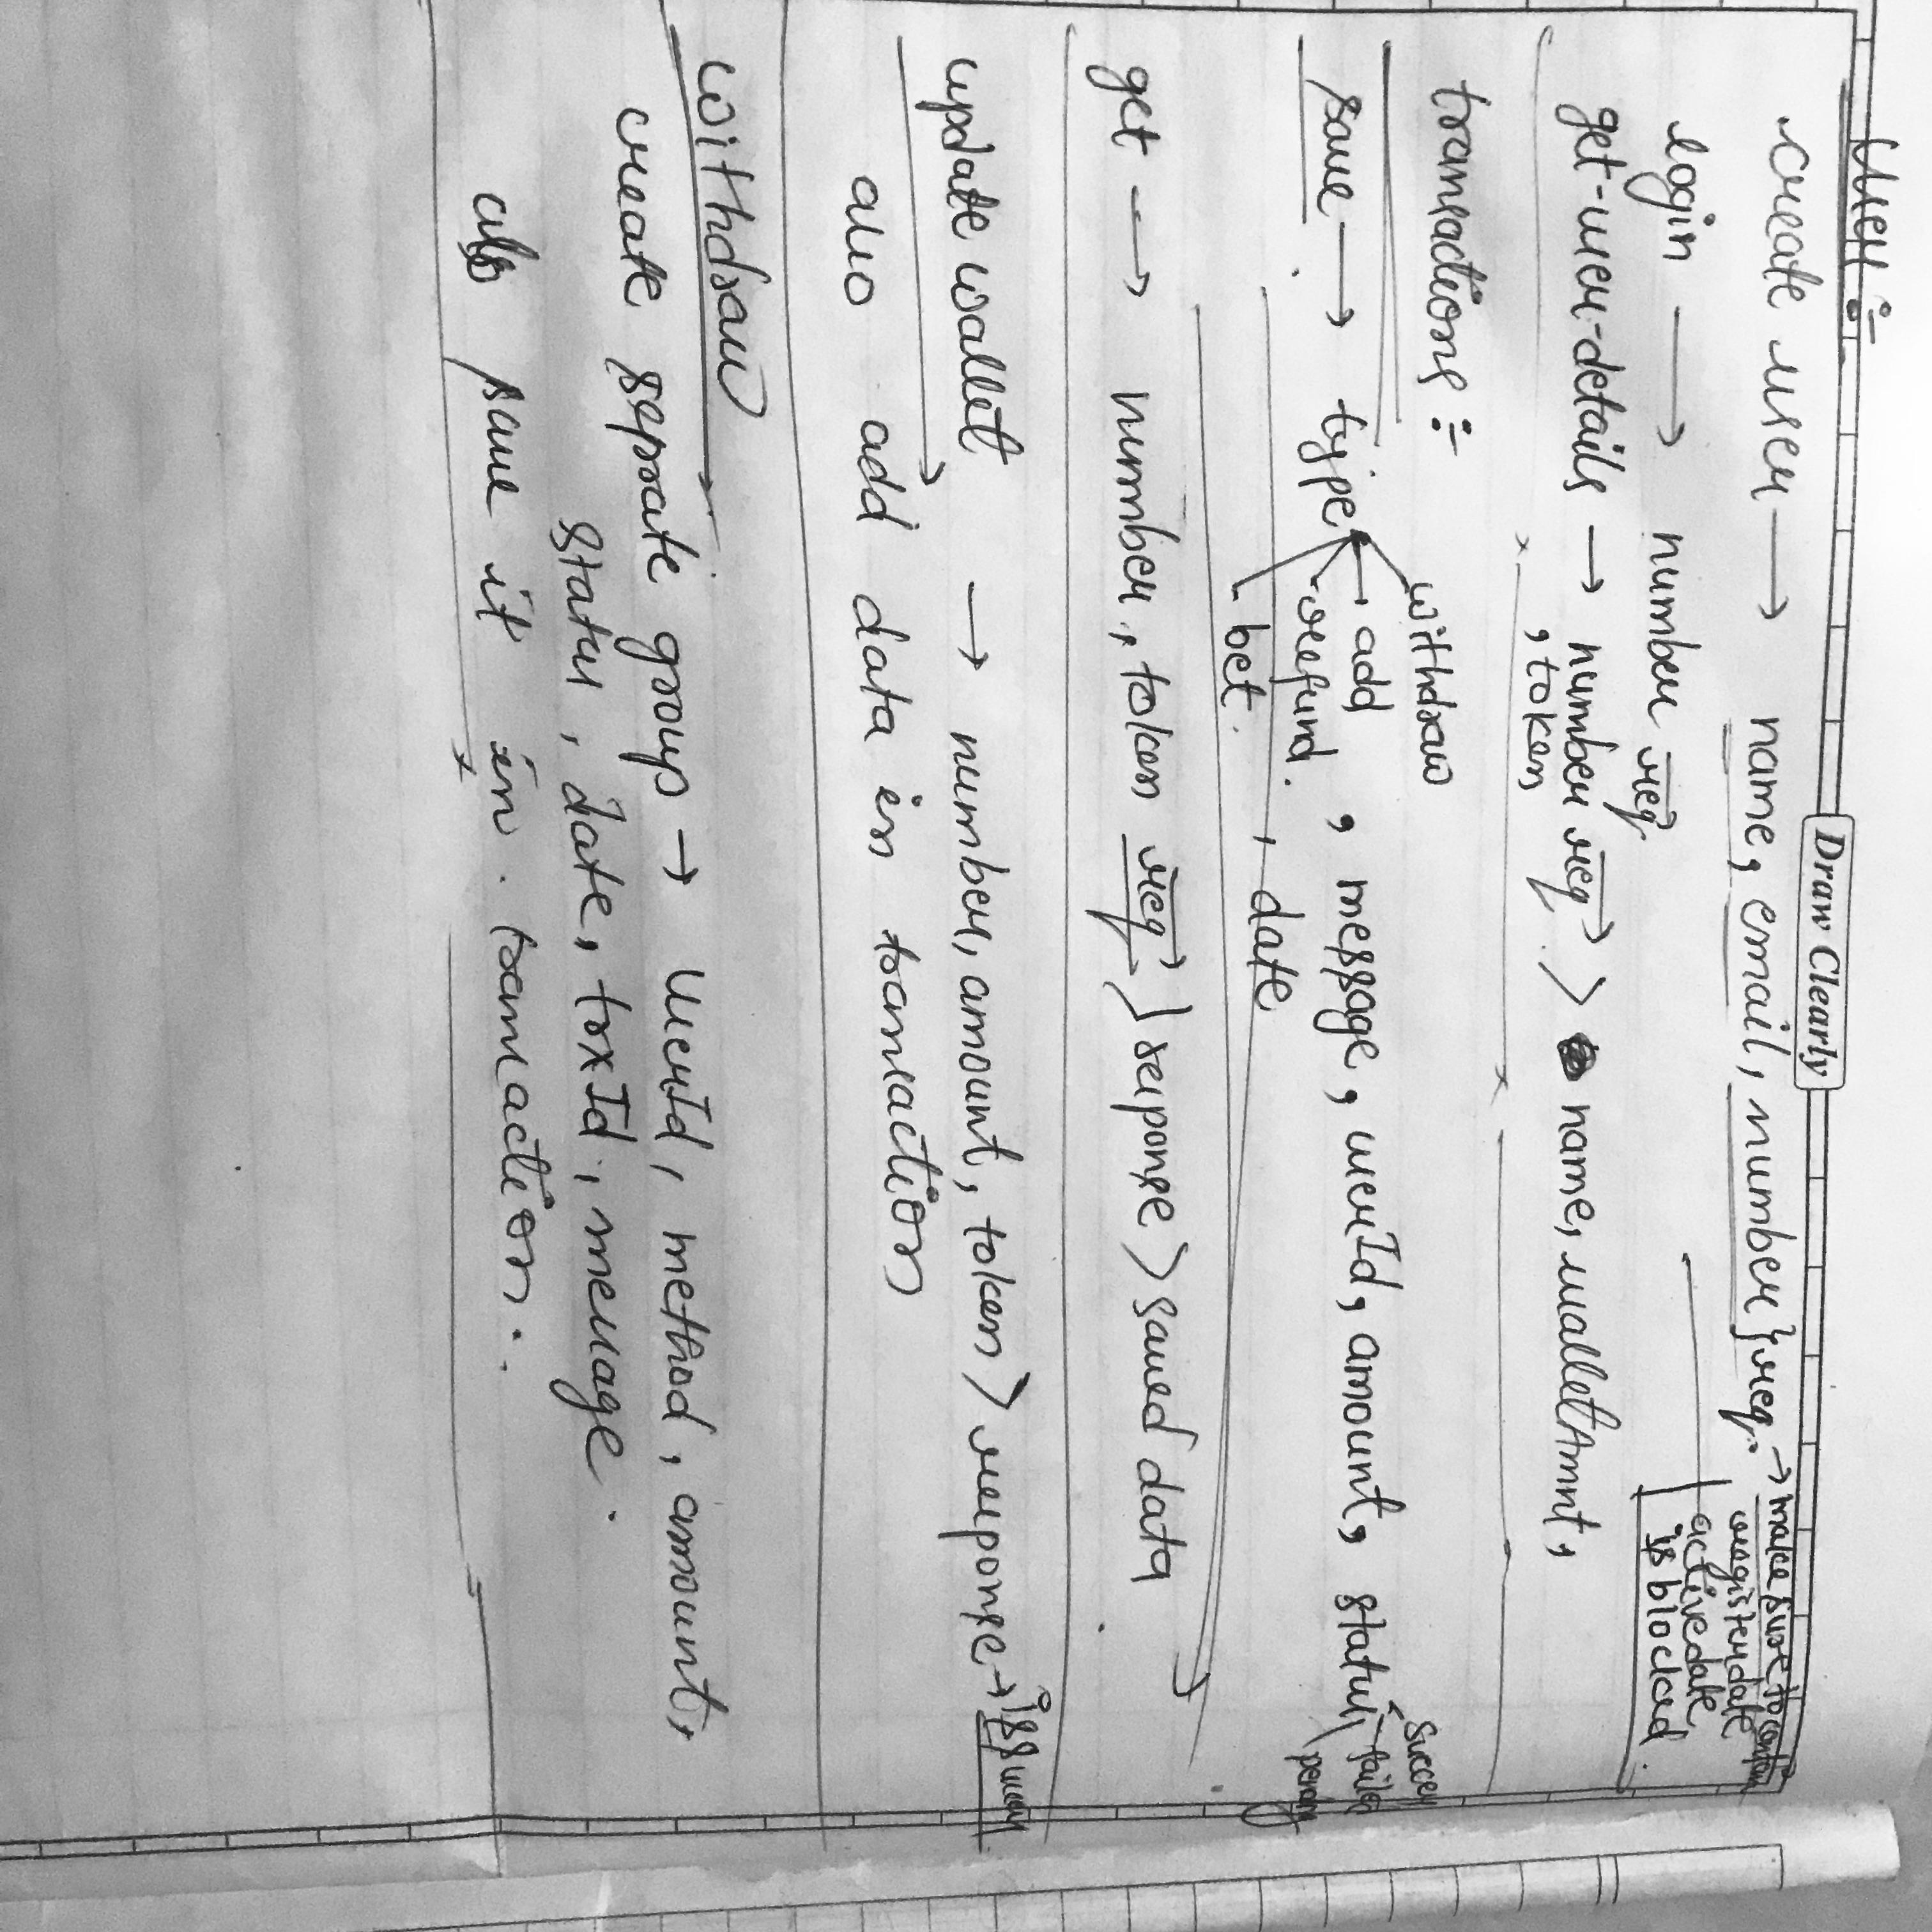 User :-
Draw Clearly
create user → name, email, number } req. → make sure to contain
registerdate
activedate
is blocked.
login → number req.
get-user-details → number req > name, walletAmnt,
, token
transactions :-
save → type withdraw
add
refund.
bet.
, message, userId, amount, status success
failed
pending
, date
get → number, token req > response > saved data
update wallet → number, amount, token > response →
also add data in transaction
withdraw
create seprate group → UserId, method, amount,
status, date, trxId, message.
also save it in transaction..